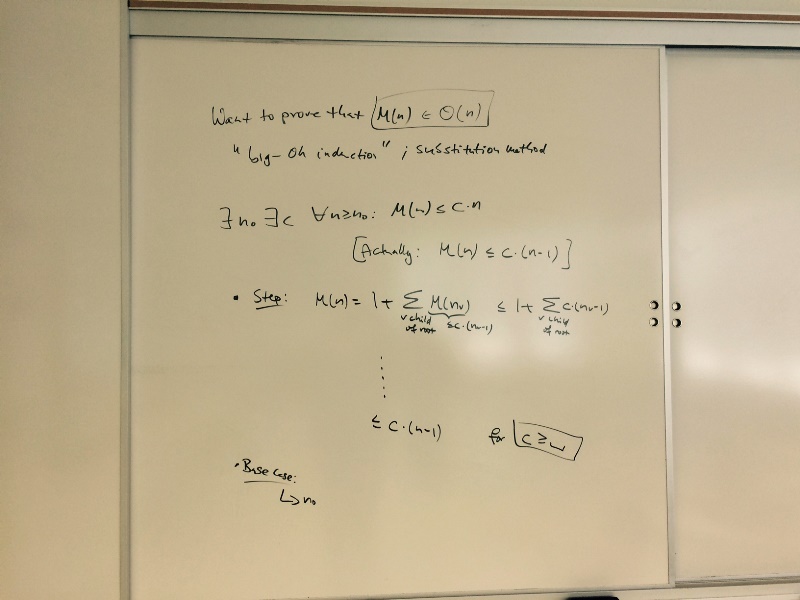 Want to prove that M(n) ∈ Θ(n)
"big-Oh induction" ; substitution method
∃ n₀ ∃ c ∀n≥n₀: M(n) ≤ c·n
[Actually: M(n) ≤ c·(n-1)]
• Step: M(n) = 1 + ∑ M(nᵥ) ≤ 1 + ∑ c·(nᵥ-1)
v child of root ≤c·(nᵥ-1) v child of root
≤ c·(n-1) for c ≥ ␣
• Base case:
↳ n₀